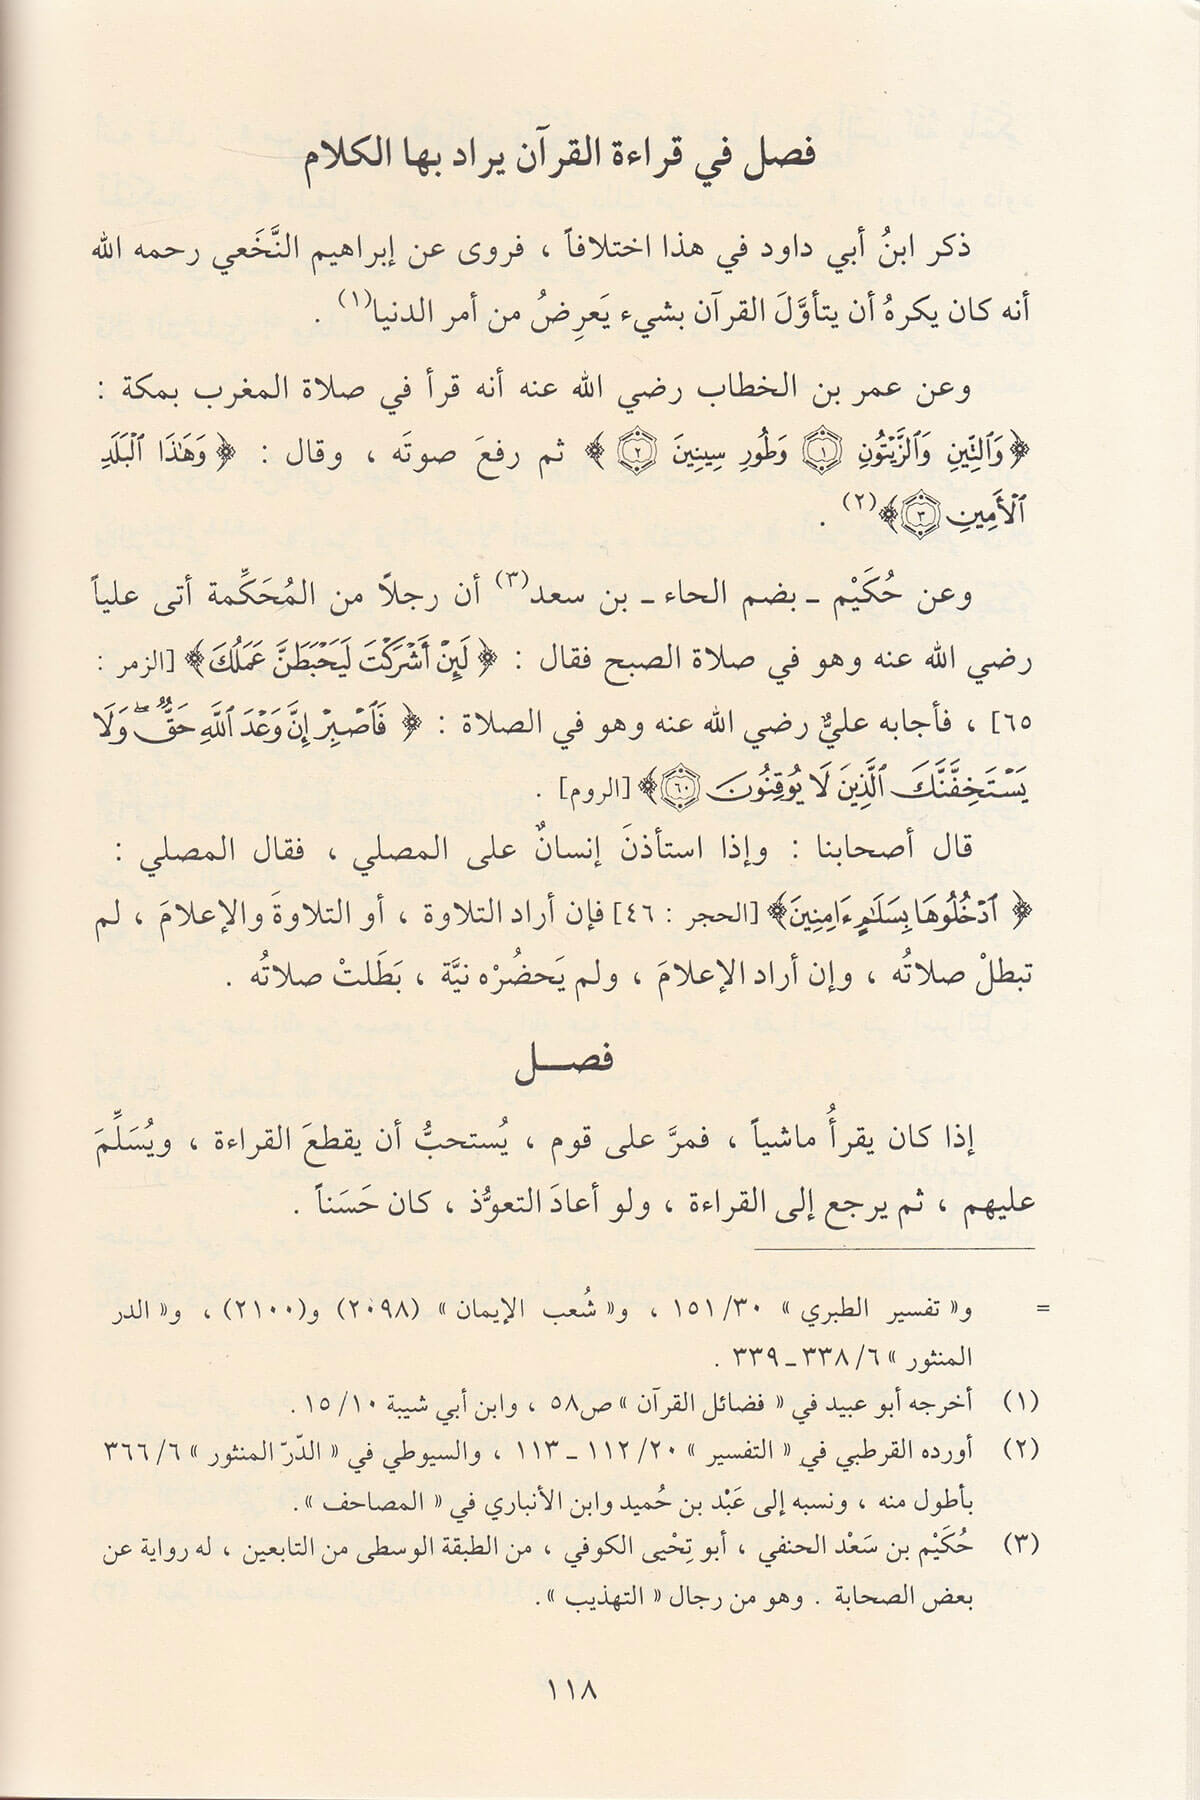 فصل في قراءة القرآن يراد بها الكلام
ذكر ابنُ أبي داود في هذا اختلافاً ، فروى عن إبراهيم النَّخَعي رحمه الله
أنه كان يكرهُ أن يتأوَّلَ القرآن بشيء يَعرِضُ من أمر الدنيا(١) .
وعن عمر بن الخطاب رضي الله عنه أنه قرأ في صلاة المغرب بمكة :
﴿وَٱلتِّينِ وَٱلزَّيْتُونِ ۝١ وَطُورِ سِينِينَ ۝٢﴾ ثم رفعَ صوتَه ، وقال : ﴿وَهَٰذَا ٱلْبَلَدِ
ٱلْأَمِينِ ۝٣﴾(٢) .
وعن حُكَيْم ـ بضم الحاء ـ بن سعد(٣) أن رجلاً من المُحَكِّمة أتى علياً
رضي الله عنه وهو في صلاة الصبح فقال : ﴿لَئِنْ أَشْرَكْتَ لَيَحْبَطَنَّ عَمَلُكَ﴾ [الزمر :
٦٥] ، فأجابه عليٌّ رضي الله عنه وهو في الصلاة : ﴿فَٱصْبِرْ إِنَّ وَعْدَ ٱللَّهِ حَقٌّ ۖ وَلَا
يَسْتَخِفَّنَّكَ ٱلَّذِينَ لَا يُوقِنُونَ ۝٦٠﴾ [الروم] .
قال أصحابنا : وإذا استأذنَ إنسانٌ على المصلي ، فقال المصلي :
﴿ٱدْخُلُوهَا بِسَلَٰمٍ ءَامِنِينَ﴾ [الحجر : ٤٦] فإن أراد التلاوة ، أو التلاوةَ والإعلامَ ، لم
تبطلْ صلاتُه ، وإن أراد الإعلامَ ، ولم يَحضُرْه نيَّة ، بَطَلتْ صلاتُه .
فصـــل
إذا كان يقرأُ ماشياً ، فمرَّ على قوم ، يُستحبُّ أن يقطعَ القراءة ، ويُسَلِّمَ
عليهم ، ثم يرجع إلى القراءة ، ولو أعادَ التعوُّذ ، كان حَسَناً .
= و« تفسير الطبري » ٣٠/ ١٥١ ، و« شُعب الإيمان » (٢٠٩٨) و(٢١٠٠) ، و« الدر
المنثور » ٦/ ٣٣٨ ـ ٣٣٩ .
(١) أخرجه أبو عبيد في « فضائل القرآن » ص٥٨ ، وابن أبي شيبة ١٠/ ١٥ .
(٢) أورده القرطبي في « التفسير » ٢٠/ ١١٢ ـ ١١٣ ، والسيوطي في « الدّرّ المنثور » ٦/ ٣٦٦
بأطول منه ، ونسبه إلى عَبْد بن حُميد وابن الأنباري في « المصاحف ».
(٣) حُكَيْم بن سَعْد الحنفي ، أبو تِحْيى الكوفي ، من الطبقة الوسطى من التابعين ، له رواية عن
بعض الصحابة . وهو من رجال « التهذيب ».
١١٨